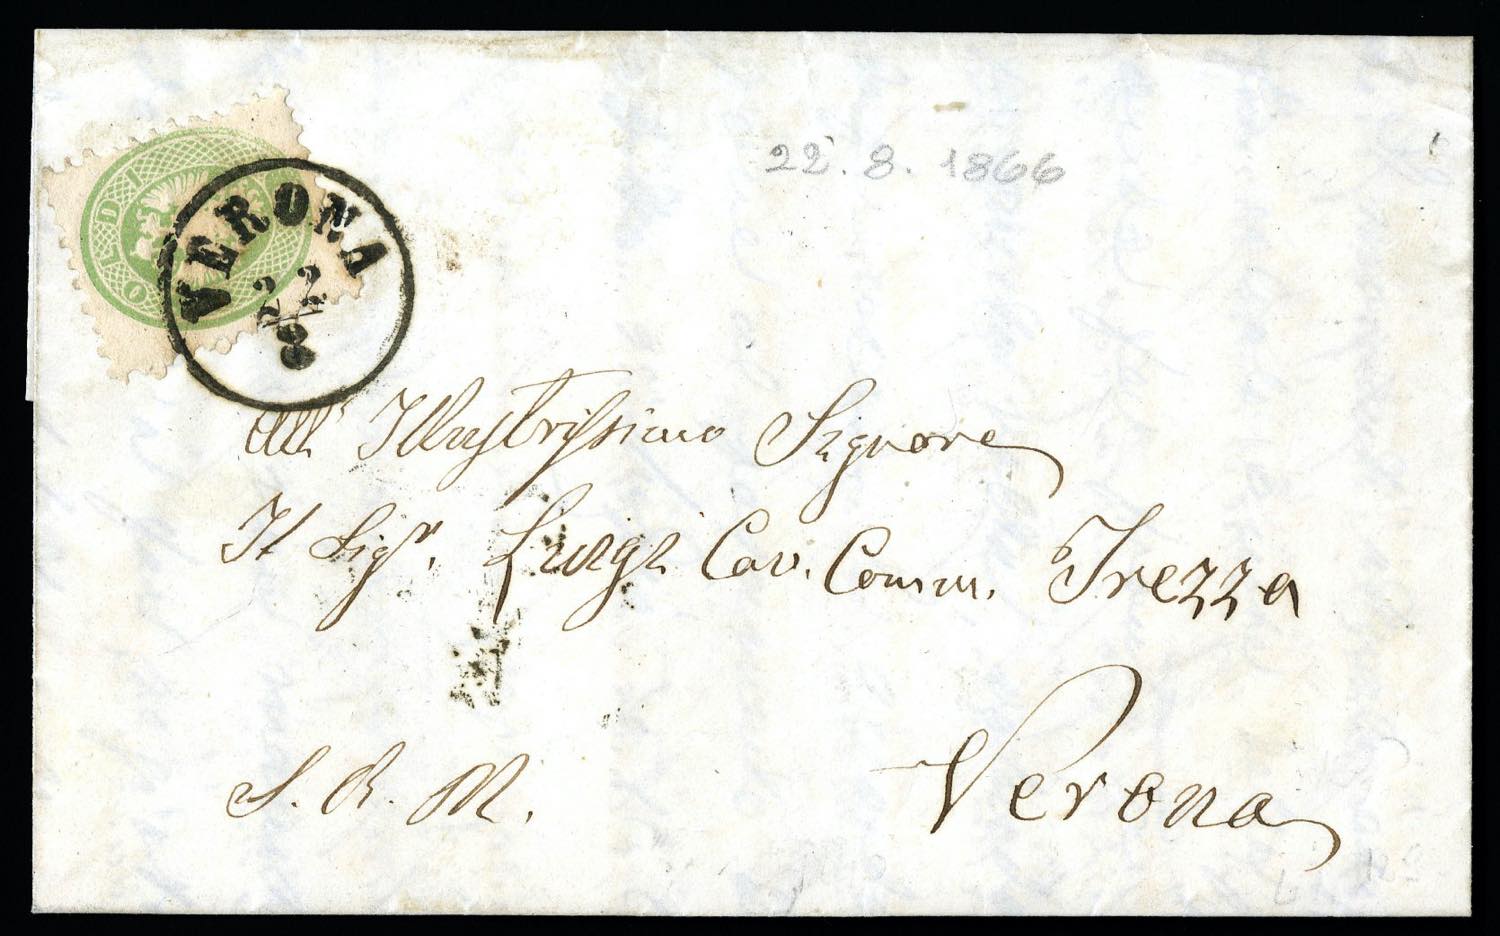 SOLDI
VERONA
22
8
22. 8. 1866
All' Illustrissimo Signore
Il Sigr. Luigi Cav. Comm. Trezza
Verona
S. R. M.